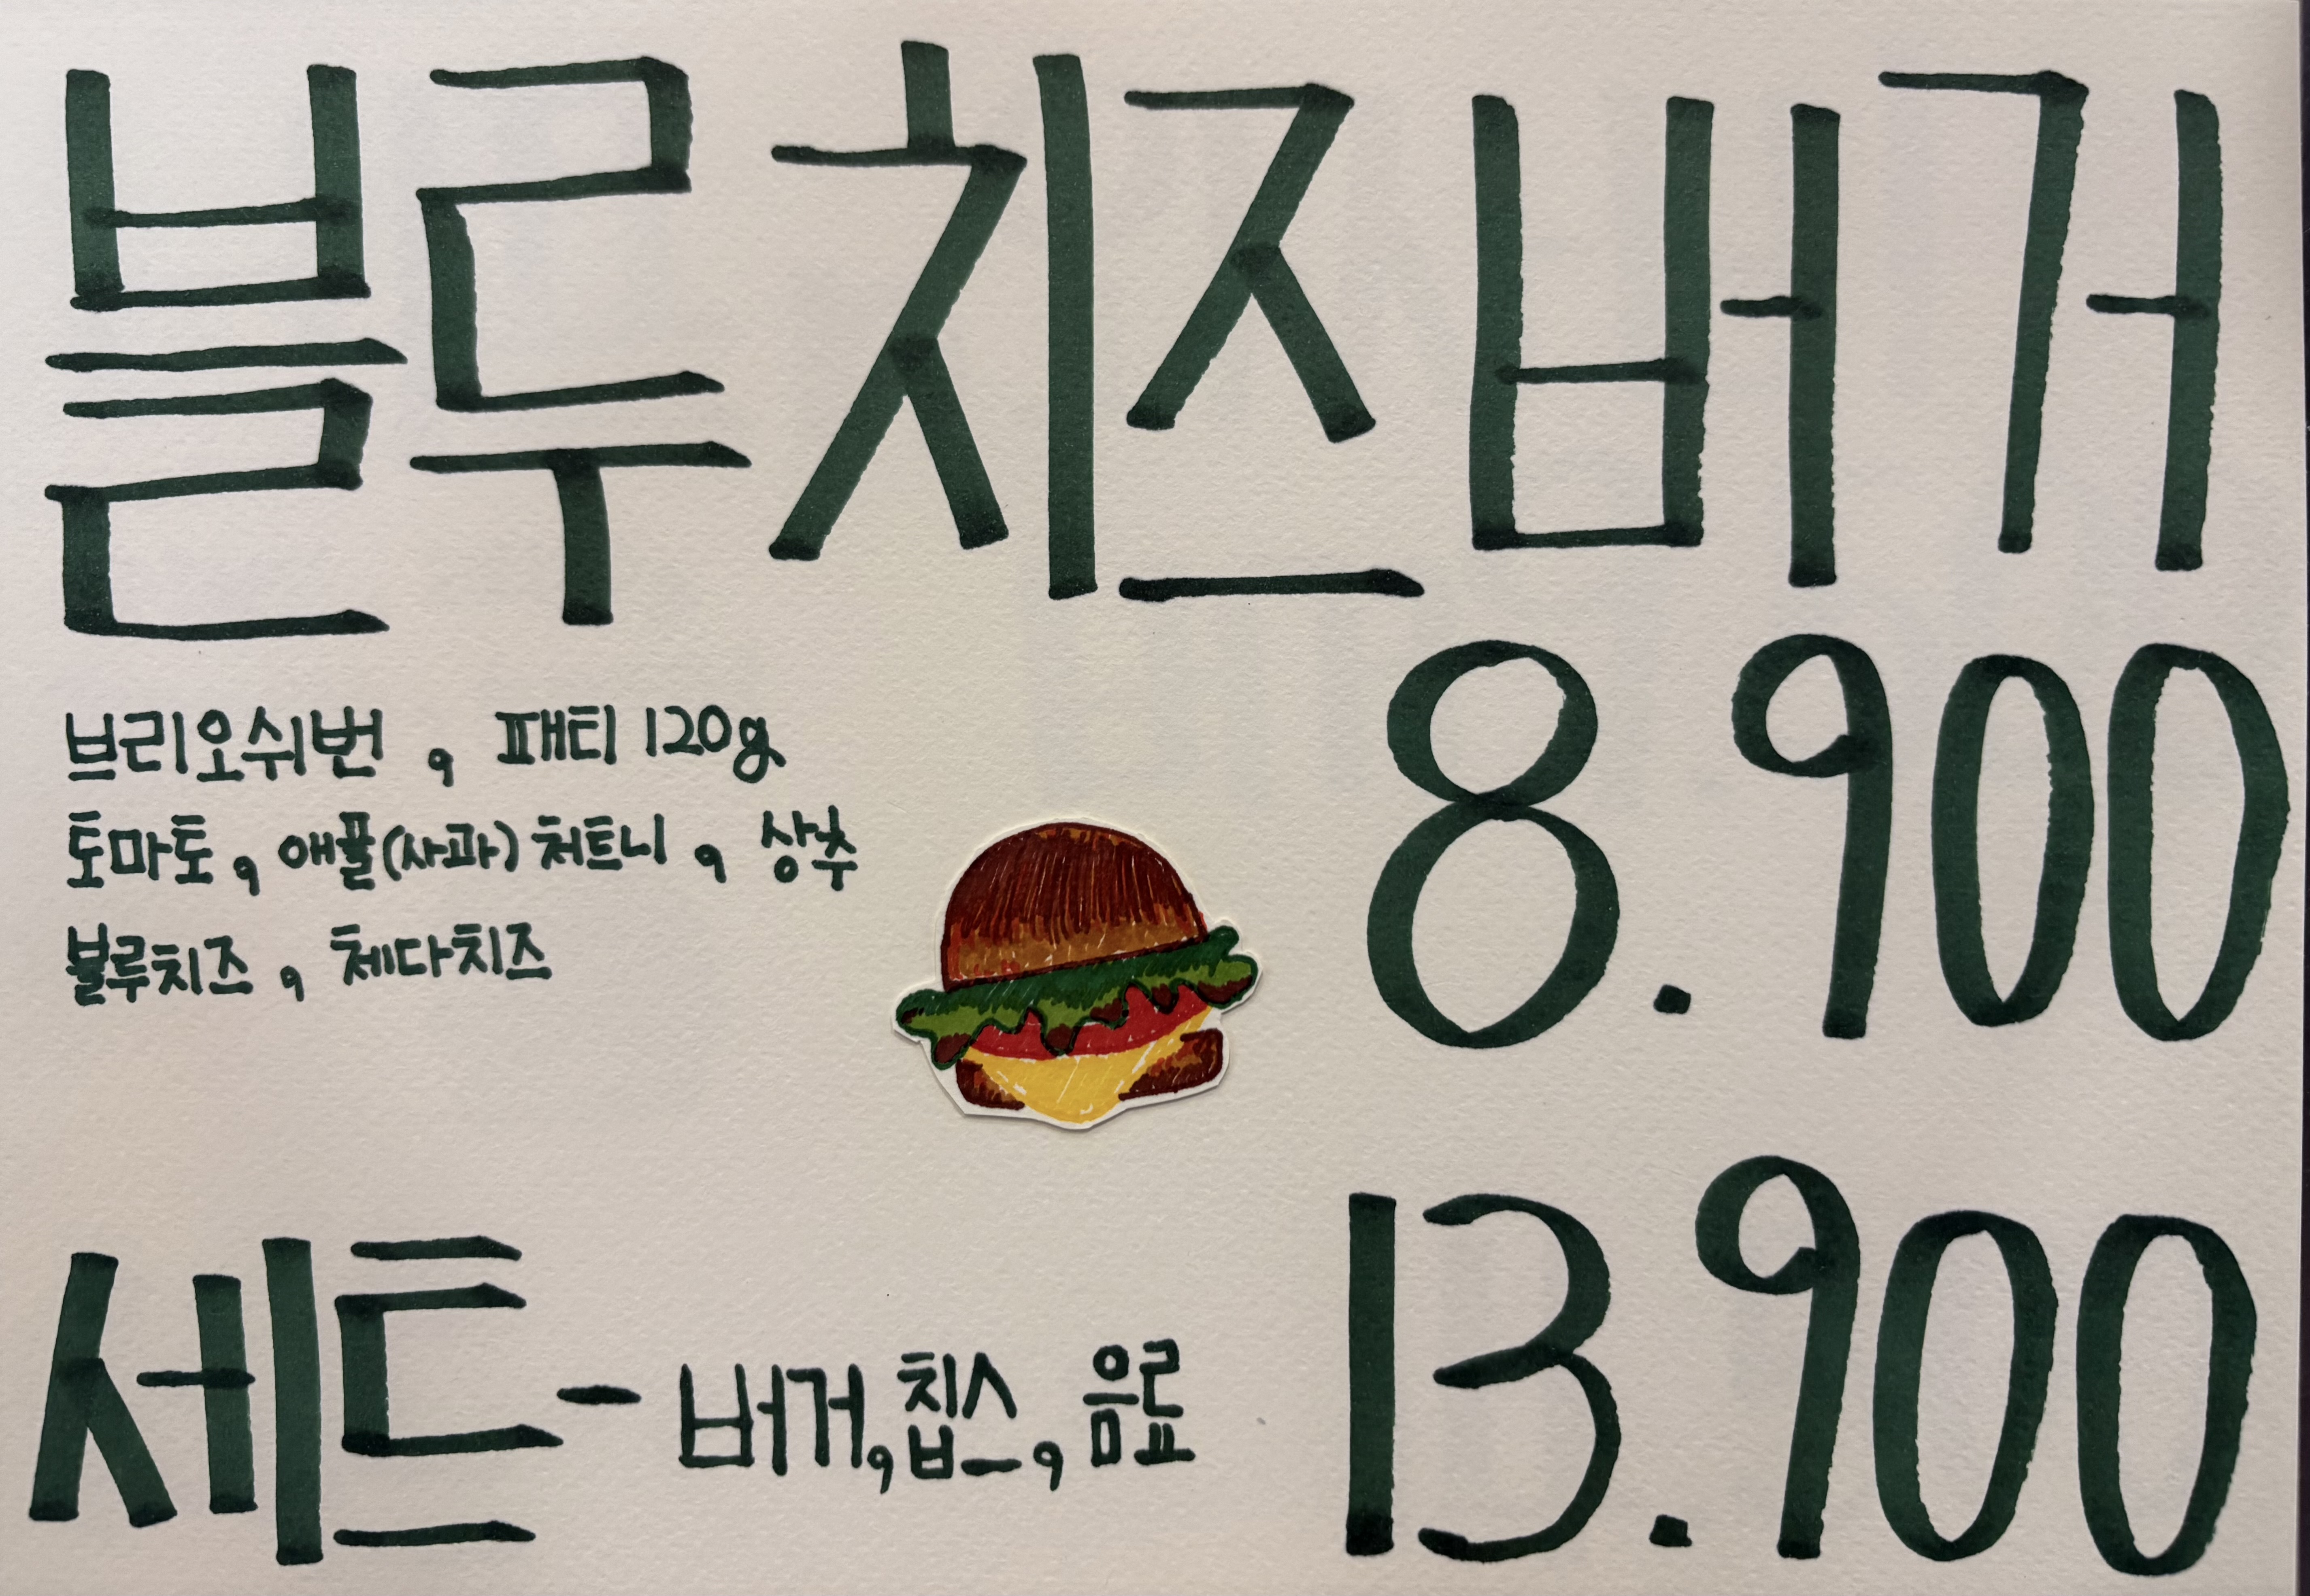 블루치즈버거
8.900
브리오쉬번, 패티 120g
토마토, 애플(사과) 처트니, 상추
블루치즈, 체다치즈
세트 - 버거, 칩스, 음료
13.900